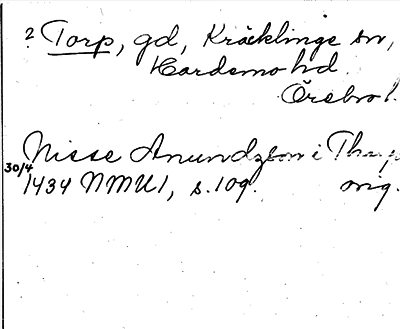 ? Torp, gd, Kräcklinge sn,
Hardemo hd.
Örebro l.
Nisse Anundzson i Thorp
30/4 1434 NMU1, s. 109. orig.